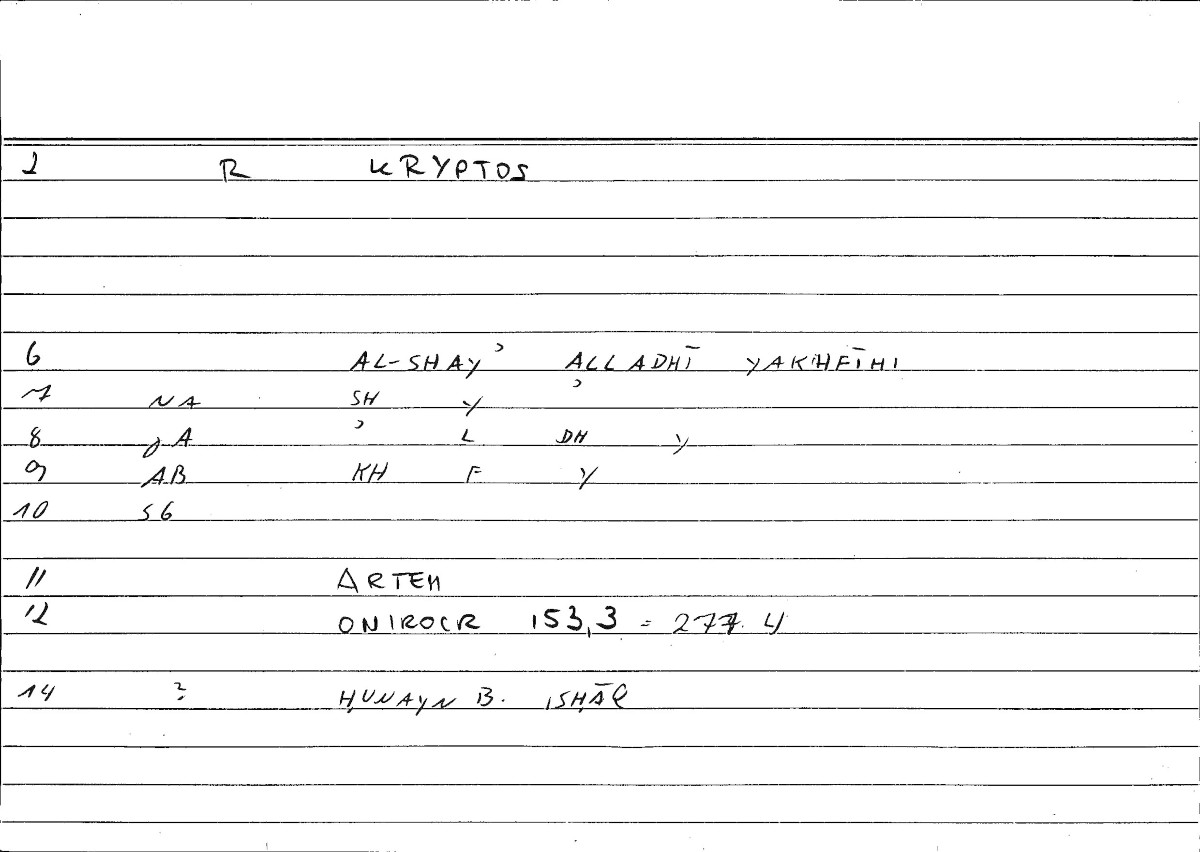 1 R KRYPTOS
6 AL-SHAYʾ ALLADHĪ YAKHFĪHI
7 NA SH Y ʾ
8 gA ʾ L DH Y
9 AB KH F Y
10 SG
11 ARTEM
12 ONIROCR 153,3 = 277.4
14 ? ḤUNAYN B. ISḤĀQ